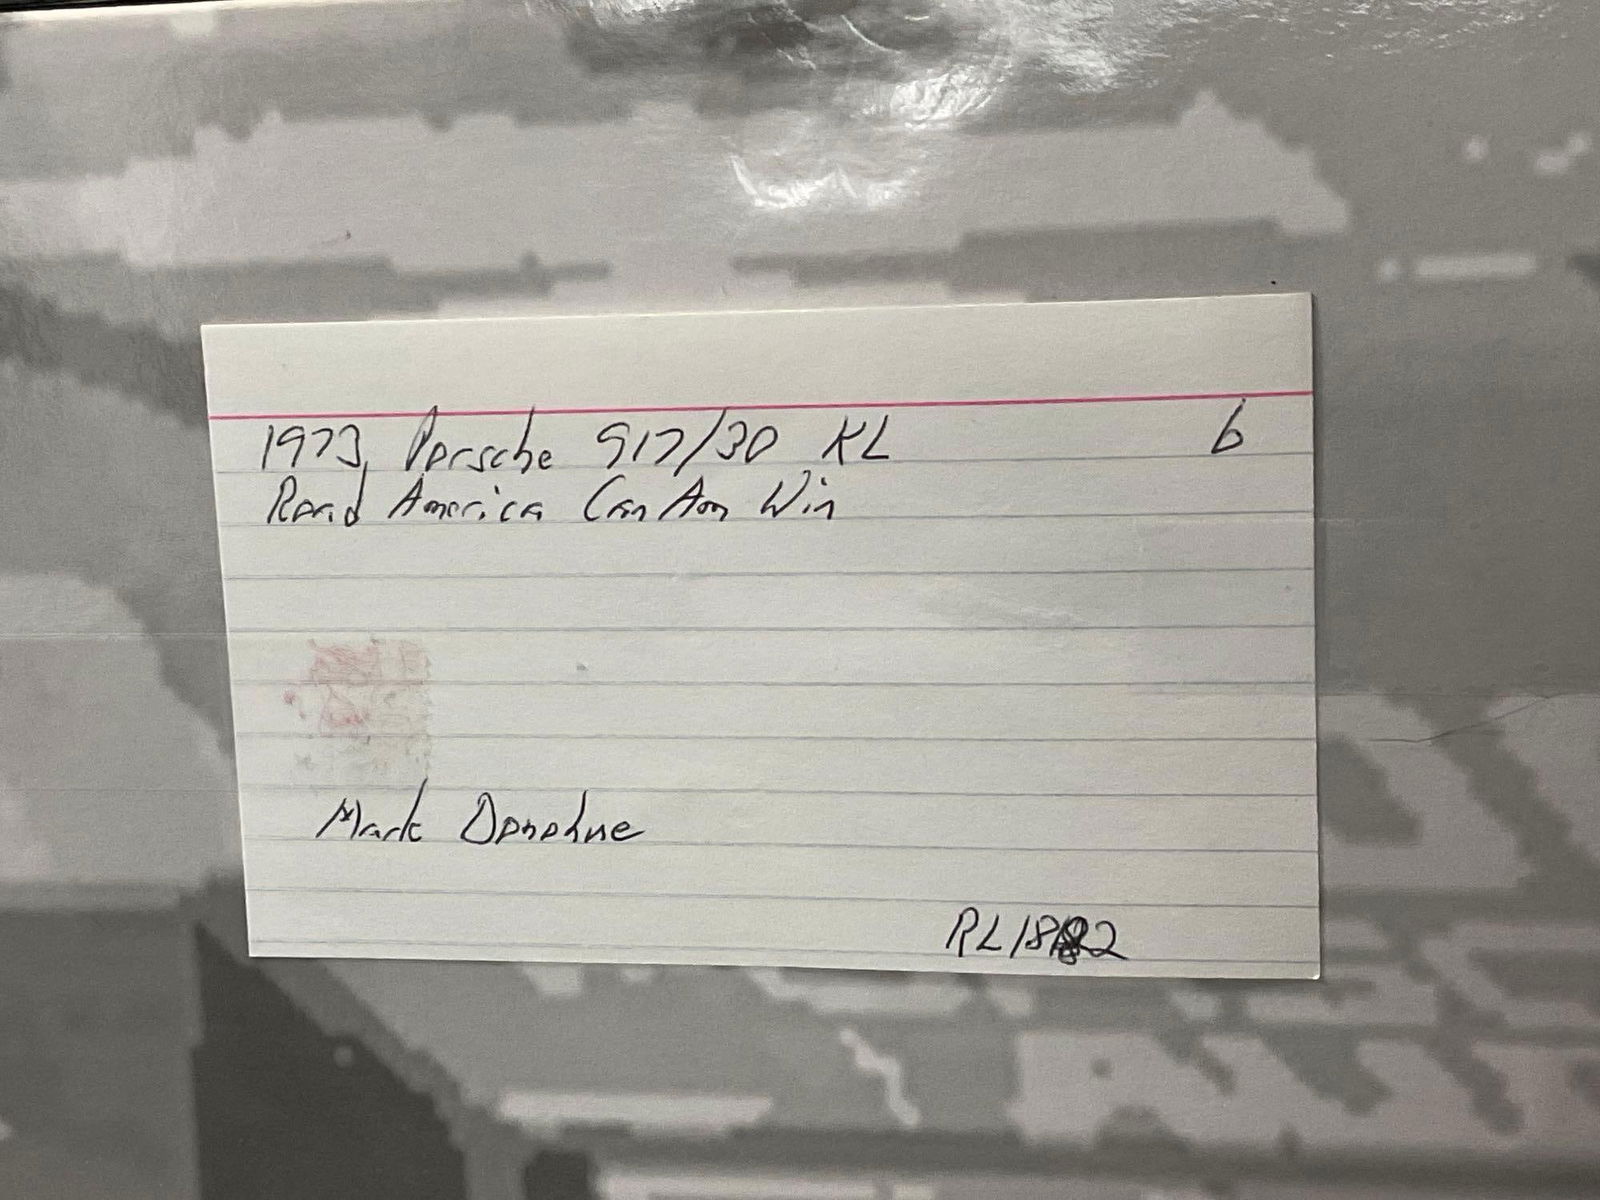 1973 Porsche 917/30 KL 6
Road America Can Am Win
Mark Donohue